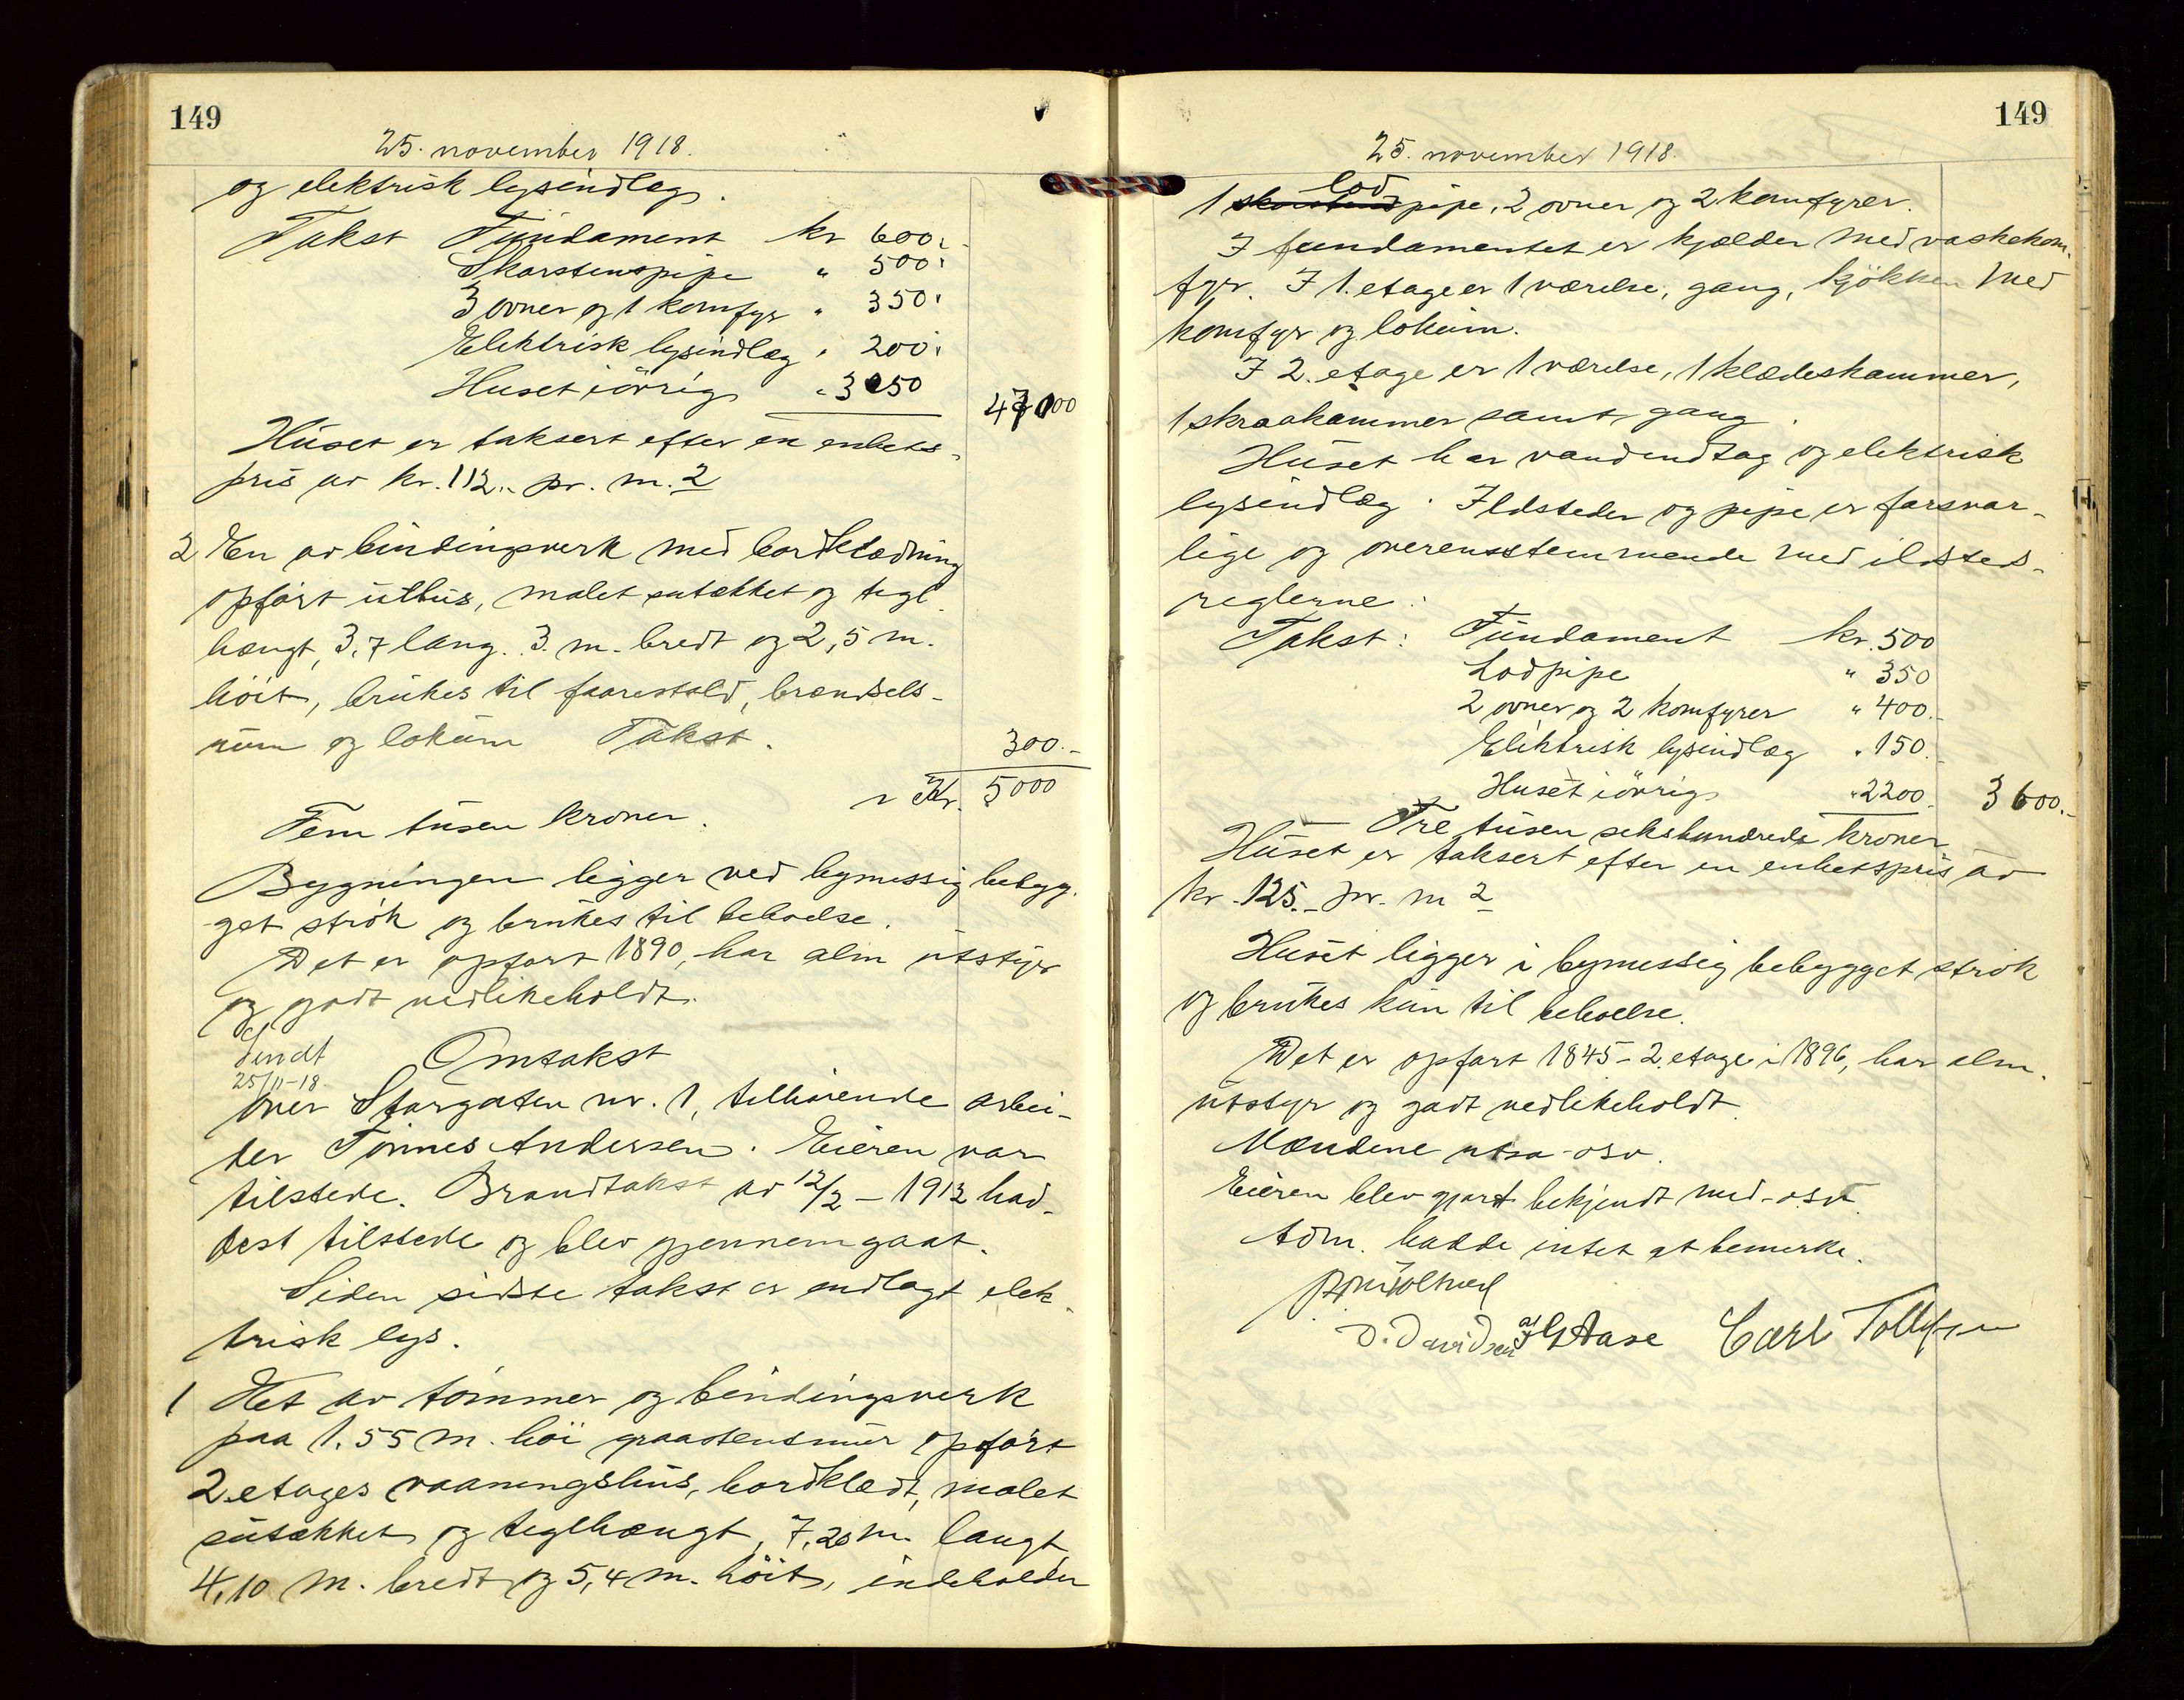 149
25. november 1918.
og elektrisk lysindlæg.
Takst Fundament kr 600.-
Skorstenspipe " 500.
3 ovner og 1 komfyr " 350.
Elektrisk lysindlæg " 200.
Huset iövrig " 3050 4700
Huset er taksert efter en enhets-
pris av kr. 112.- pr. m.2
2 En av bindingsverk med bordklædning
opført uthus, malet sutækket og tegl-
hængt, 3,7 lang. 3. m. bredt og 2,5 m.
höit, brukes til faarestald, brændsels-
rum og lokum Takst. 300.-
Kr. 5000
Fem tusen kroner.
Bygningen ligger ved bymessig bebyg-
get strök og brukes til beboelse.
Det er opfört 1890, har alm utstyr
og godt vedlikeholdt.
Sendt
25/11-18.
Omtakst
over Storgaten nr. 1, tilhörende arbei-
der Tönnes Andersen. Eieren var
tilstede. Brandtakst av 12/2 - 1913 had-
dest tilstede og blev gjennemgaat.
Siden sidste takst er indlagt elek-
trisk lys.
1 Het av tömmer og bindingsverk
paa 1.55 m. höi graastensmur opfört
2 etages vaaningshus, bordklædt, malet
sutækket og teglhængt, 7,20 m. langt
4,10 m. bredt og 5,4 m. höit, indeholder
149
25. november 1918.
1 lodpipe, 2 ovner og 2 komfyrer.
I fundamentet er kjælder med vaskekom-
fyr. I 1. etage er 1 værelse, gang, kjökken med
komfyr og lokum.
I 2. etage er 1 værelse, 1 klædeskammer,
1 skraakammer samt gang.
Huset har vandindtag og elektrisk
lysindlæg. Ildsteder og pipe er forsvar-
lige og overensstemmende med ildsteds-
reglerne.
Takst: Fundament kr. 500
Lodpipe " 350
2 ovner og 2 komfyrer " 400.-
Elektrisk lysindlæg " 150.-
Huset iövrig " 2200.- 3600.-
Tre tusen sekshundrede kroner
Huset er taksert efter en enhetspris av
kr. 125.- pr. m 2
Huset ligger i bymessig bebygget strök
og brukes kun til beboelse.
Det er opfört 1845 - 2. etage i 1896, har alm.
utstyr og godt vedlikeholdt.
Mændene utsa - osv.
Eieren blev gjort bekjendt med - osv.
Adm. hadde intet at bemerke.
D. Davidsen G Aase Carl Tollefsen